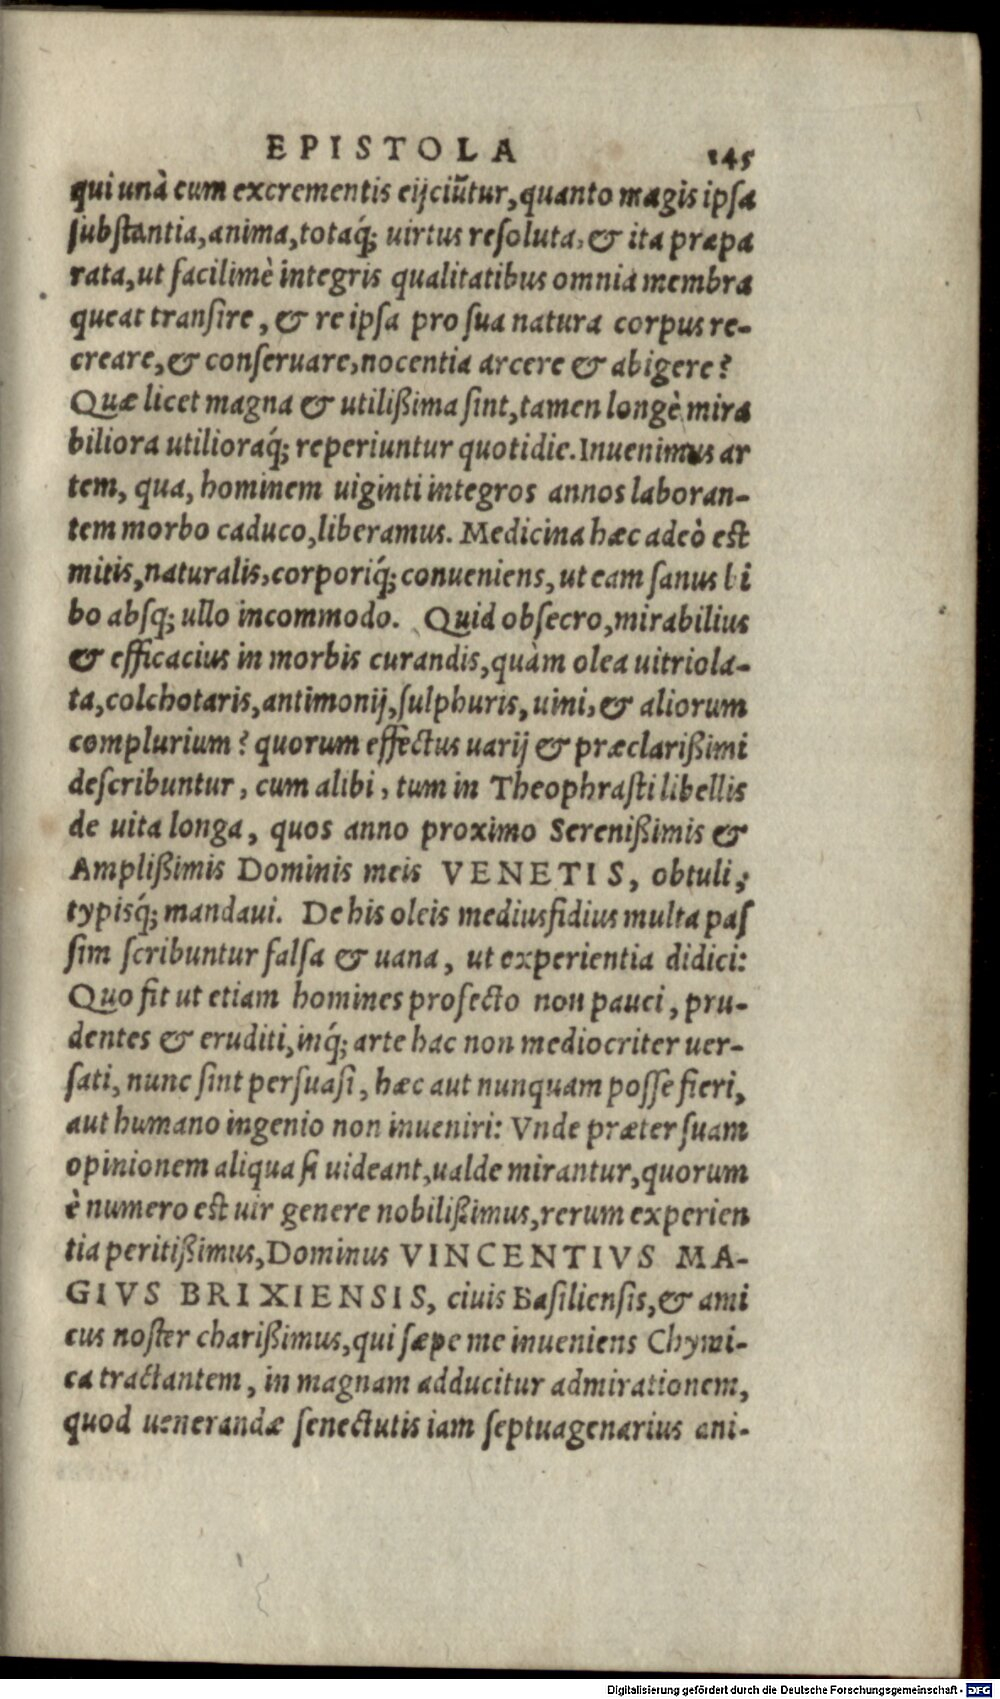 EPISTOLA 145
qui unà cum excrementis eijciūtur, quanto magis ipsa
substantia, anima, totaq́; uirtus resoluta, & ita præpa
rata, ut facilimè integris qualitatibus omnia membra
queat transire, & re ipsa pro sua natura corpus re-
creare, & conseruare, nocentia arcere & abigere?
Quæ licet magna & utilißima sint, tamen longè mira
biliora utilioraq́; reperiuntur quotidie. Inuenimus ar
tem, qua, hominem uiginti integros annos laboran-
tem morbo caduco, liberamus. Medicina hæc adeò est
mitis, naturalis, corporiq́; conueniens, ut eam sanus bi
bo absq; ullo incommodo. Quid obsecro, mirabilius
& efficacius in morbis curandis, quàm olea uitriola-
ta, colchotaris, antimonij, sulphuris, uini, & aliorum
complurium? quorum effectus uarij & præclarißimi
describuntur, cum alibi, tum in Theophrasti libellis
de uita longa, quos anno proximo Serenißimis &
Amplißimis Dominis meis VENETIS, obtuli,
typisq́; mandaui. De his oleis mediusfidius multa pas
sim scribuntur falsa & uana, ut experientia didici:
Quo fit ut etiam homines profecto non pauci, pru-
dentes & eruditi, inq́; arte hac non mediocriter uer-
sati, nunc sint persuasi, hæc aut nunquam posse fieri,
aut humano ingenio non inueniri: Vnde præter suam
opinionem aliqua si uideant, ualde mirantur, quorum
è numero est uir genere nobilißimus, rerum experien
tia peritißimus, Dominus VINCENTIVS MA-
GIVS BRIXIENSIS, ciuis Basiliensis, & ami
cus noster charißimus, qui sæpe me inueniens Chymi-
ca tractantem, in magnam adducitur admirationem,
quod uenerandæ senectutis iam septuagenarius ani-
Digitalisierung gefördert durch die Deutsche Forschungsgemeinschaft - DFG